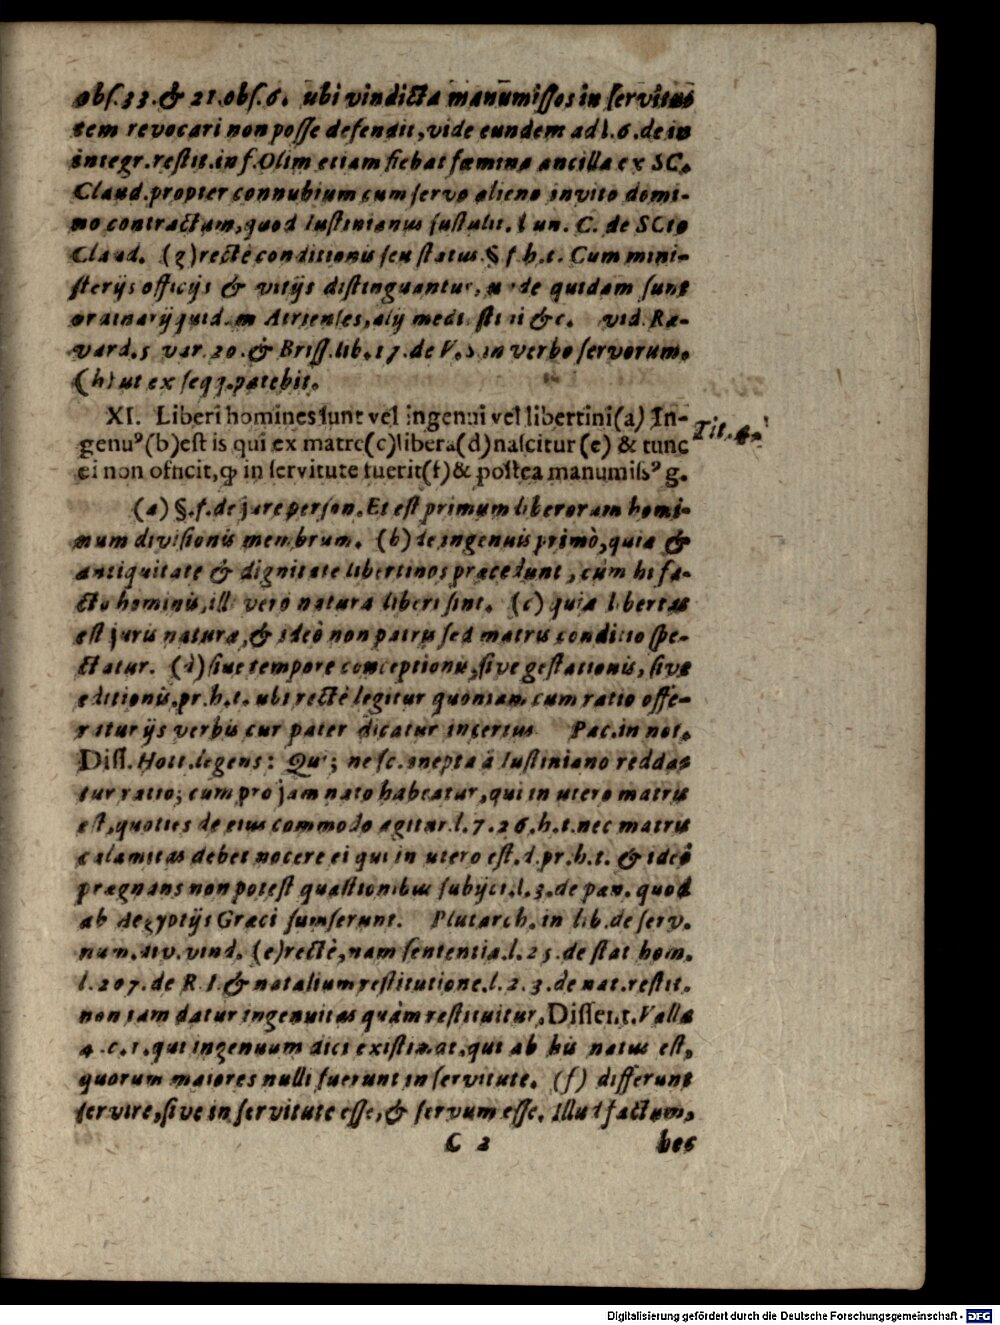 obſ. 33. & 21. obſ. 6. ubi vindicta manumiſſos in ſervitu-
tem revocari non poſſe defendit, vide eundem ad l. 6. de in
integr. reſtit. in f. Olim etiam fiebat fœmina ancilla ex SC.
Claud. propter connubium cum ſervo alieno invito domi-
no contractum, quod Iuſtinianus ſuſtulit. l un. C. de SCto
Claud. (g) rectè conditionis ſeu ſtatus. § f h. t. Cum mini-
ſterijs officijs & vitijs diſtinguantur, unde quidam ſunt
ordinarij quidam Atrienſes, alij &c. vid. Ræ-
vard. 5 var. 20. & Briſſ. lib. 17. de V. S in verbo ſervorum.
(h) ut ex ſeqq. patebit.
XI. Liberi homines ſunt vel ingenui vel libertini (a) In- Tit. 4.
genuꝰ (b) eſt is qui ex matre (c) libera (d) naſcitur (e) & tunc
ei non officit, ꝙ in ſervitute fuerit (f) & poſtea manumiſsꝰ g.
(a) §. f. de jure perſon. Et eſt primum liberorum homi-
num diviſionis membrum. (b) de ingenuis primò, quia &
antiquitate & dignitate libertinos præcedunt, cùm hi fa-
cto hominis, illi vero natura liberi ſint. (c) quia libertas
eſt juris naturæ, & ideò non patris ſed matris conditio ſpe-
ctatur. (d) ſive tempore conceptionis, ſive geſtationis, ſive
editionis. pr. h. t. ubi rectè legitur quoniam, cum ratio offe-
ratur ijs verbis cur pater dicatur incertus Pac. in not.
Diſſ. Hott. legens: Qui; ne ſc. inepta à Iuſtiniano redda-
tur ratio; cum pro jam nato habeatur, qui in utero matris
eſt, quoties de eius commodo agitur. l. 7. 26. h. t. nec matris
calamitas debet nocere ei qui in utero eſt. d. pr. h. t. & ideò
prægnans non poteſt quæſtionibus ſubijci. l. 3. de pœn. quod
ab Aegyptijs Græci ſumſerunt. Plutarch. in lib. de ſerv.
num. vind. (e) rectè, nam ſententia. l. 25. de ſtat hom.
l. 207. de R. I. & natalium reſtitutione. l. 2. 3. de nat. reſtit.
non tam datur ingenuitas quàm reſtituitur. Diſſent. Valla
4. c. 1. qui ingenuum dici exiſtimat, qui ab his natus eſt,
quorum maiores nulli fuerunt in ſervitute. (f) differunt
ſervire, ſive in ſervitute eſſe, & ſervum eſſe. Illud factum,
C 2 hoc
Digitalisierung gefördert durch die Deutsche Forschungsgemeinschaft - DFG